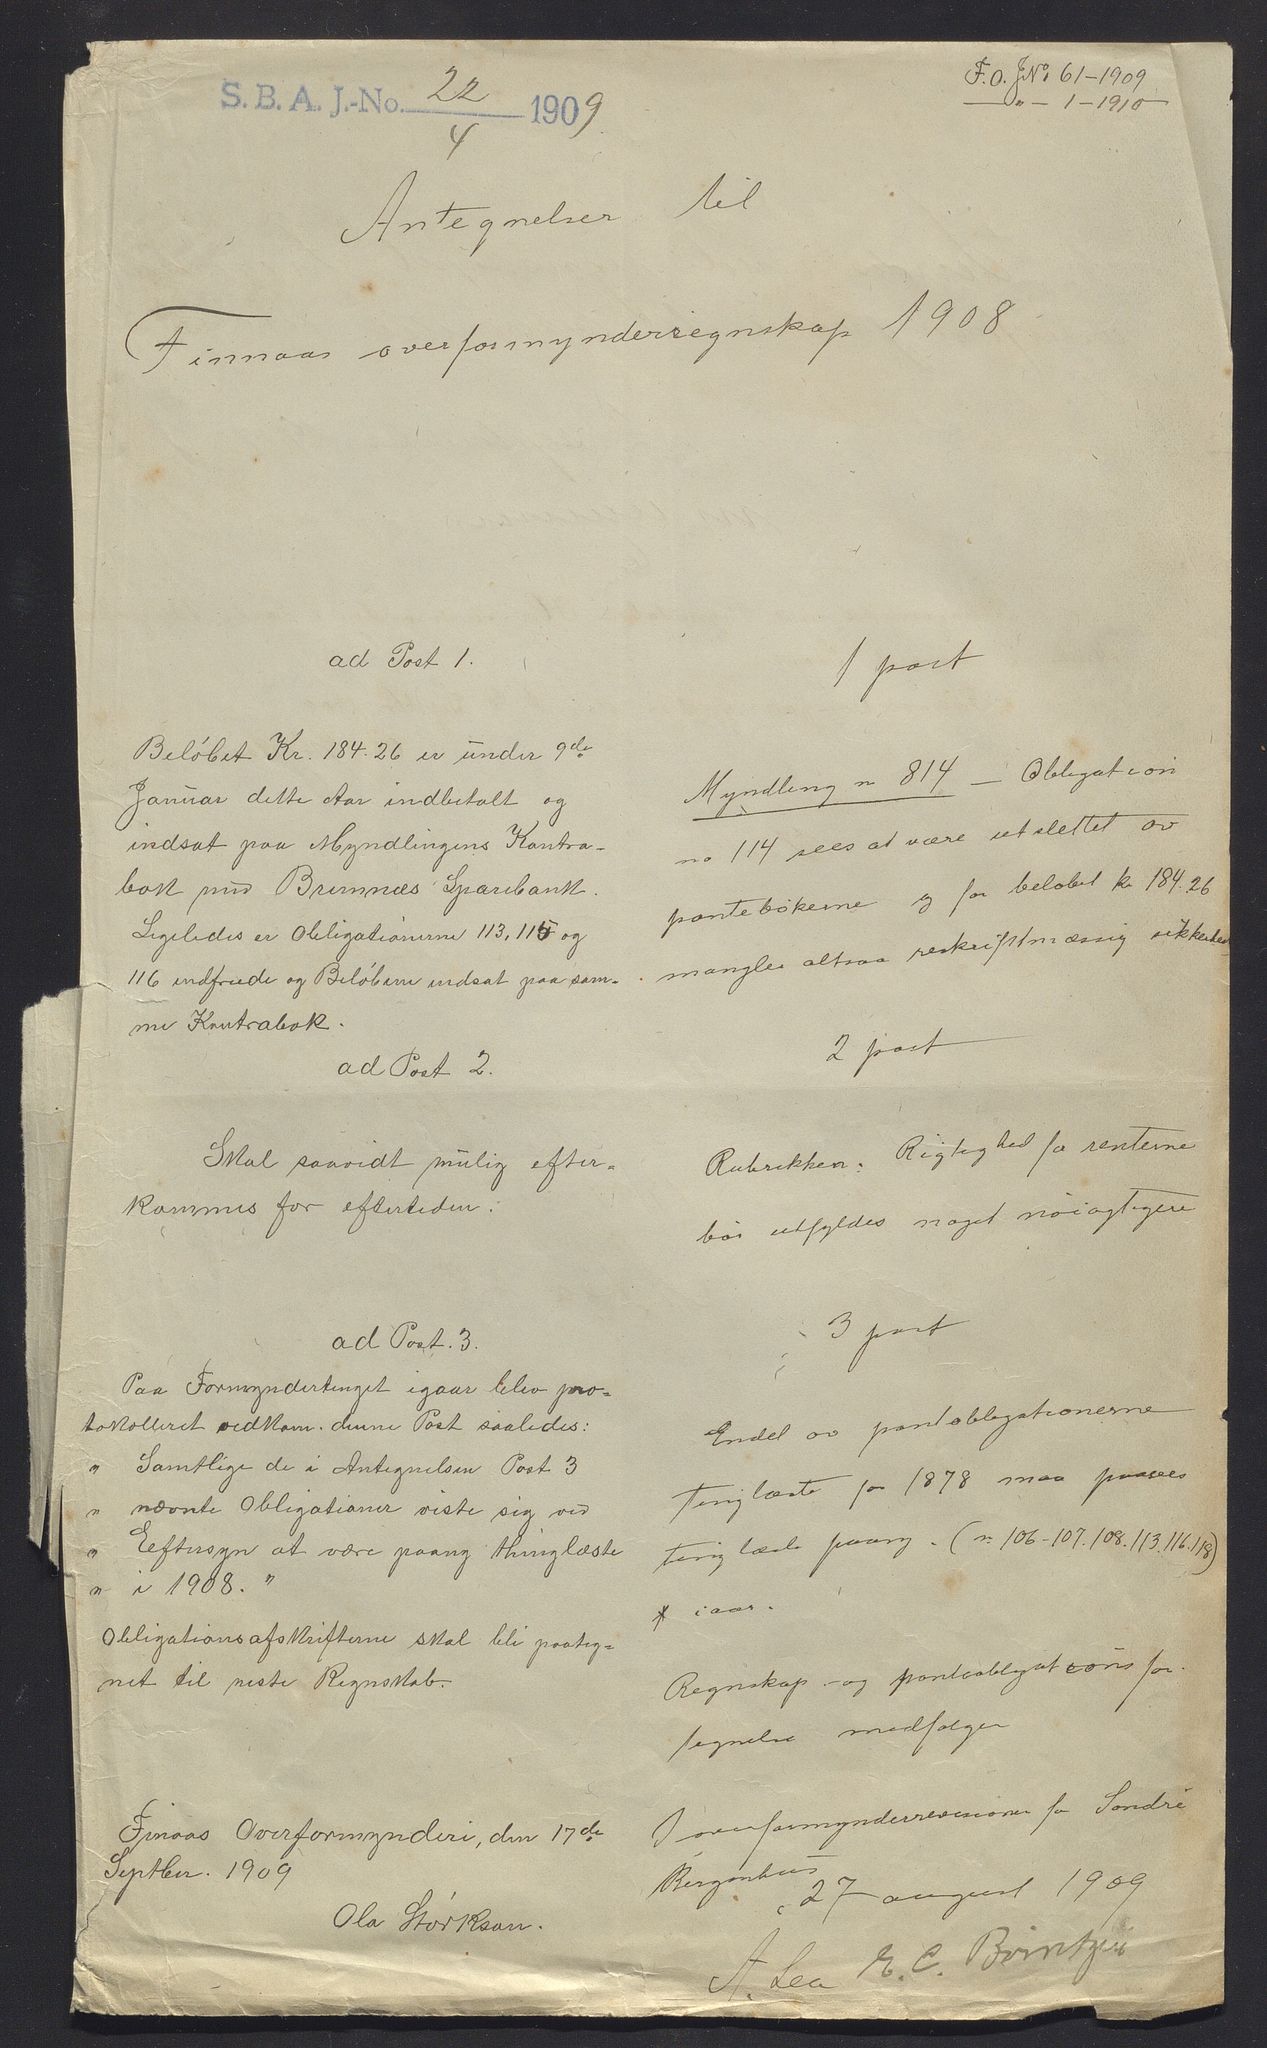 F.O. J.No. 61-1909
" - 1-1910
S. B. A. J.-No. 22/4 1909
Antegnelser til
Finnaas overformynderregnskap 1908
ad Post 1.
Beløbet Kr. 184.26 er under 9de
Januar dette Aar indbetalt og
indsat paa Myndlingens Kontra-
bok med Bremnæs Sparebank.
Ligeledes er Obligationerne 113, 115 og
116 indfriede og Beløbene indsat paa sam-
me Kontrabok.
ad Post 2.
Skal saavidt mulig efter-
kommes for eftertiden.
ad Post. 3.
Paa Formyndertinget igaar blev pro-
tokolleret vedkom. denne Post saaledes:
" Samtlige de i Antegnelsen Post 3
" nævnte Obligationer viste sig ved
" Eeftersyn at være paany thinglæste
" i 1908. "
Obligationsafskrifterne skal bli paateg-
net til neste Regnskab.
Finaas Overformynderi, den 17de
Septber. 1909
Ola Størkson.
1 post
Myndling n 814 - Obligation
no 114 sees at være utslettet av
pantebøkerne og for beløbet kr 184.26
mangler altsaa reskriftmæssig sikkerhed
2 post
Rubrikken: Rigtighed for renterne
bør utfyldes noget nøiagtigere
3 post
Endel av pantobligationerne
tinglæste før 1878 maa paasees
tinglæste paany. (n. 106-107.108.113.116.118)
* i aar.
Regnskap - og pantobligations for-
tegnelse medfølger
I overformynderrevisionen for Søndre
Bergenhus
27 august 1909
A. Lea E. C.